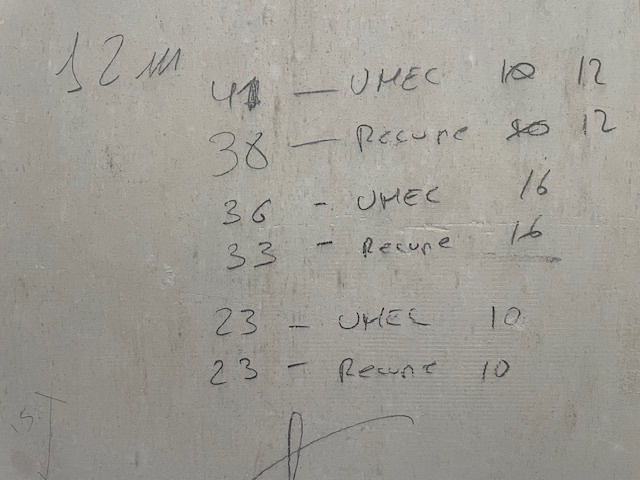 12 m
41 — UMEC 10 12
38 — Recupe 10 12
36 - UMEC 16
33 - Recupe 16
23 - UMEC 10
23 - Recupe 10